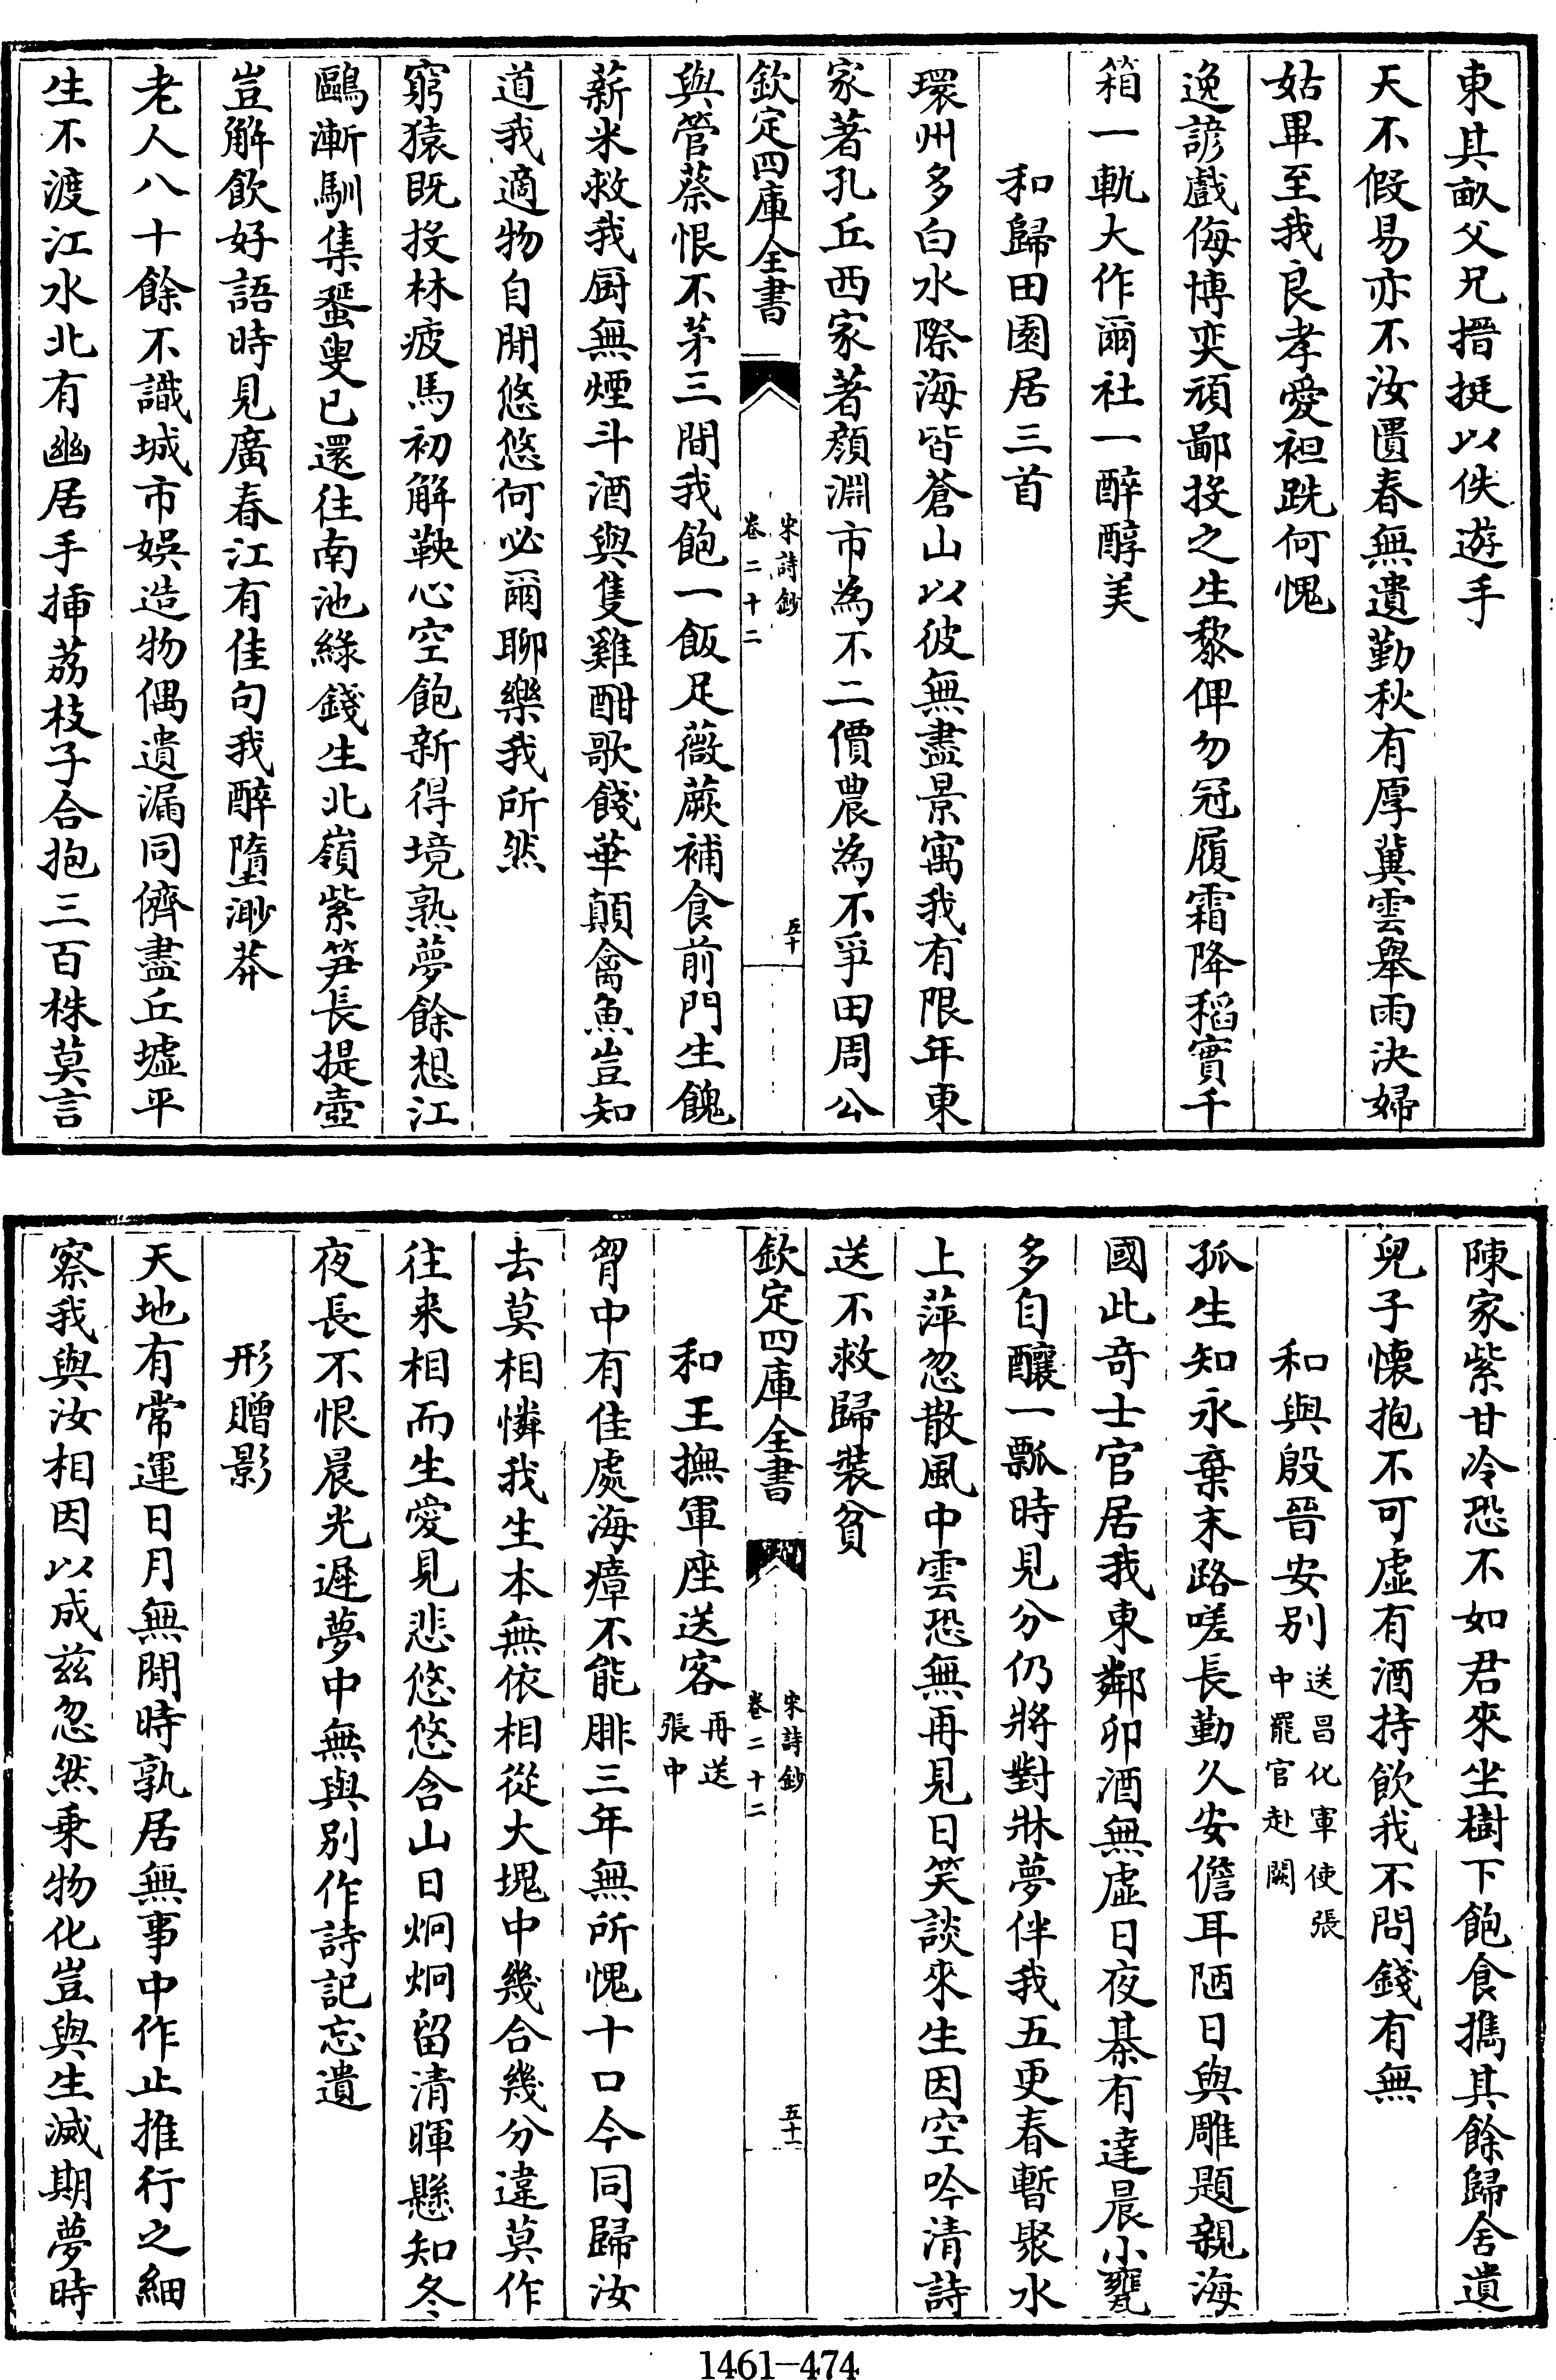 東其畝父兄搢挺以佚遊手
天不假易亦不汝匱春無遺勤秋有厚冀雲舉雨決婦
姑畢至我良孝愛袒跣何愧
逸諺戲侮博奕頑鄙投之生黎俾勿冠履霜降稻實千
箱一軌大作爾社一醉醇美
和歸田園居三首
環州多白水際海皆蒼山以彼無盡景寓我有限年東
家著孔丘西家著顏淵市為不二價農為不爭田周公
欽定四庫全書
宋詩鈔
卷二十二
五十
與管蔡恨不茅三間我飽一飯足薇蕨補食前門生餽
薪米救我厨無煙斗酒與隻雞酣歌餞華顛禽魚豈知
道我適物自閒悠悠何必爾聊樂我所然
窮猿既投林疲馬初解鞅心空飽新得境熟夢餘想江
鷗漸馴集蜑叟已還往南池綠錢生北嶺紫笋長提壺
豈解飲好語時見廣春江有佳句我醉墮渺莽
老人八十餘不識城市娛造物偶遺漏同儕盡丘墟平
生不渡江水北有幽居手揷荔枝子合抱三百株莫言
陳家紫甘冷恐不如君來坐樹下飽食攜其餘歸舍遺
兒子懷抱不可虛有酒持飲我不問錢有無
和與殷晉安别送昌化軍使張
中罷官赴闕
孤生知永棄末路嗟長勤久安儋耳陋日與雕題親海
國此奇士官居我東鄰卯酒無虛日夜棊有達晨小甕
多自釀一瓢時見分仍將對牀夢伴我五更春暫聚水
上萍忽散風中雲恐無再見日笑談來生因空吟清詩
送不救歸裝貧
欽定四庫全書
宋詩鈔
卷二十二
五十一
和王撫軍座送客再送
張中
胷中有佳處海瘴不能腓三年無所愧十口今同歸汝
去莫相憐我生本無依相從大塊中幾合幾分違莫作
往来相而生愛見悲悠悠含山日炯炯留清暉懸知冬
夜長不恨晨光遲夢中無與别作詩記忘遺
形贈影
天地有常運日月無閒時孰居無事中作止推行之細
察我與汝相因以成兹忽然乗物化豈與生滅期夢時
1461-474